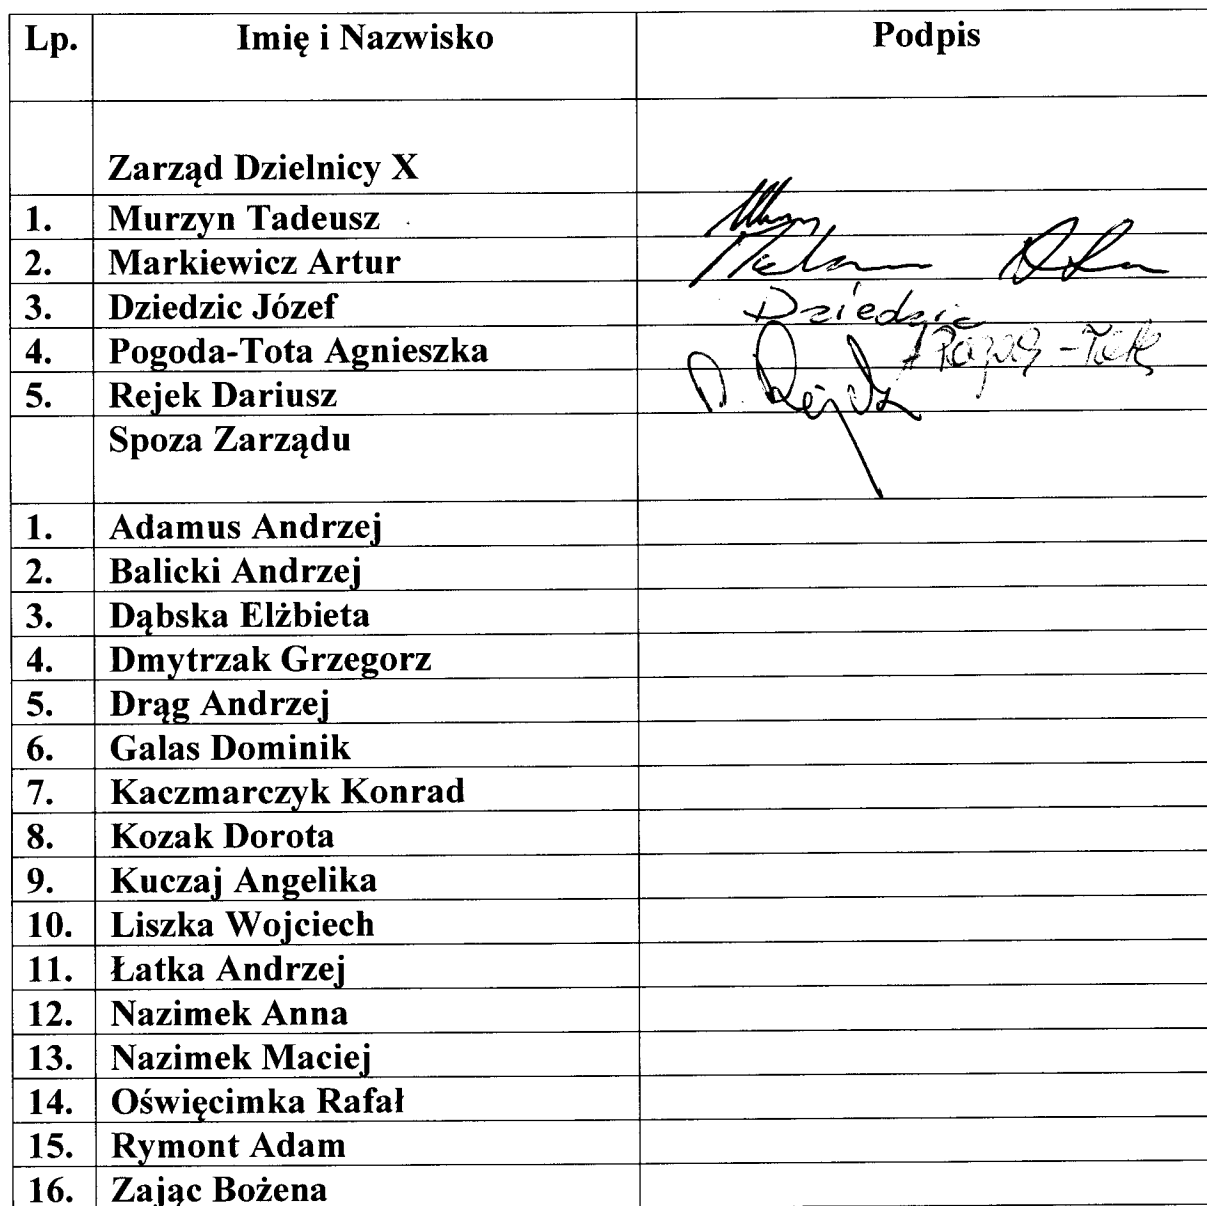 Lp. Imię i Nazwisko Podpis
Zarząd Dzielnicy X
1. Murzyn Tadeusz
2. Markiewicz Artur
3. Dziedzic Józef Dziedzic
4. Pogoda-Tota Agnieszka
5. Rejek Dariusz D. Rejek
Spoza Zarządu
1. Adamus Andrzej
2. Balicki Andrzej
3. Dąbska Elżbieta
4. Dmytrzak Grzegorz
5. Drąg Andrzej
6. Galas Dominik
7. Kaczmarczyk Konrad
8. Kozak Dorota
9. Kuczaj Angelika
10. Liszka Wojciech
11. Łatka Andrzej
12. Nazimek Anna
13. Nazimek Maciej
14. Oświęcimka Rafał
15. Rymont Adam
16. Zając Bożena